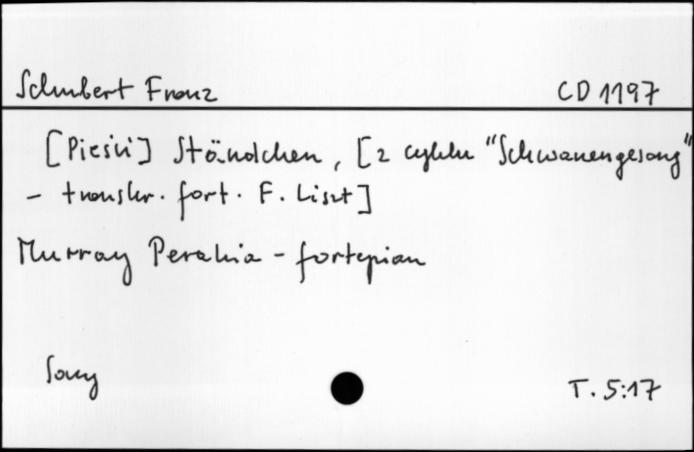 Schubert Franz CD 1197
[Pieśń] Ständchen, [z cyklu "Schwanengesang"
- transkr. fort. F. Liszt]
Murray Perahia - fortepian
Sony T. 5:17